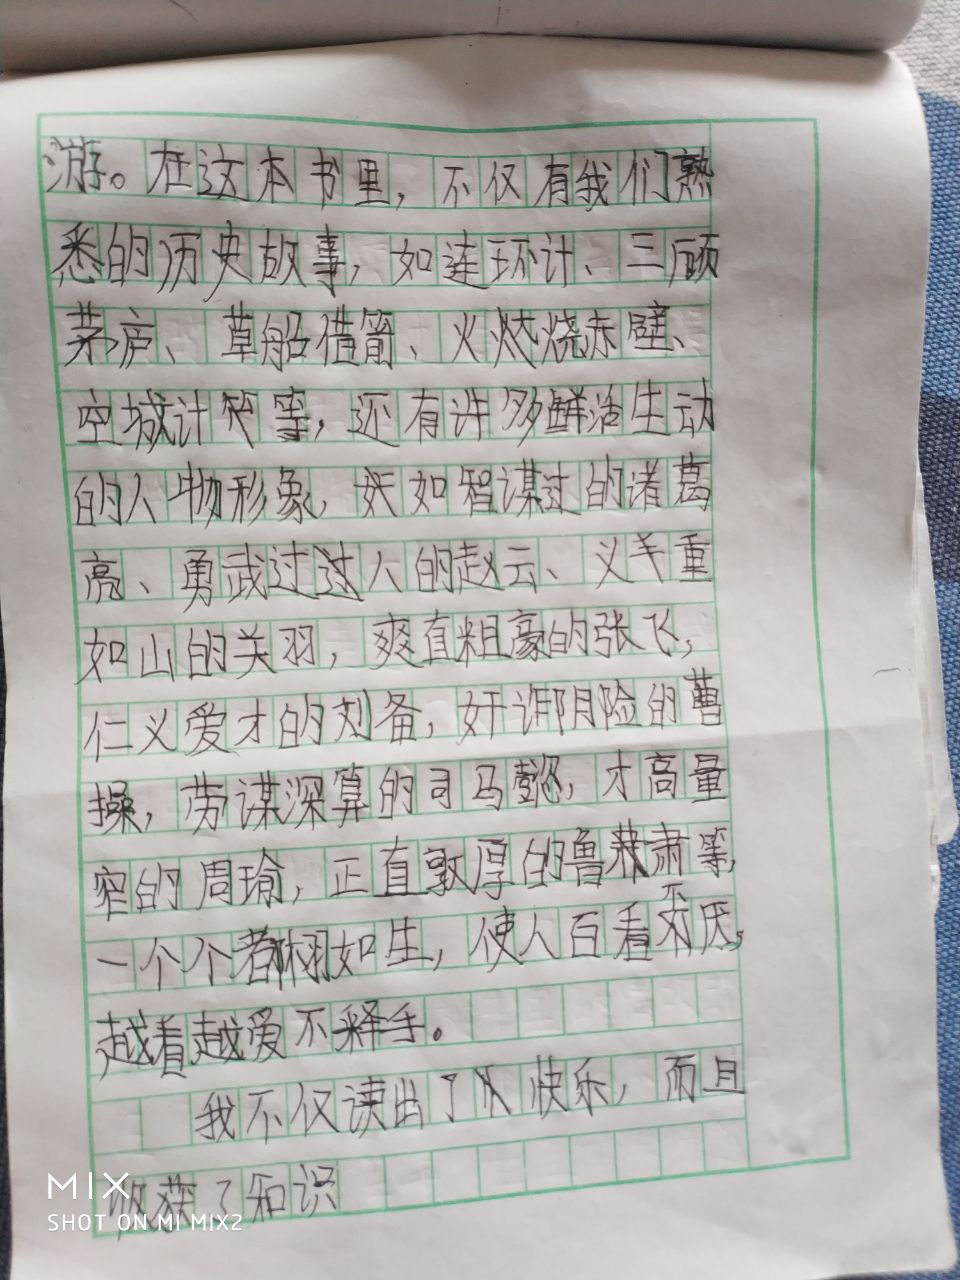 游。在这本书里，不仅有我们熟
悉的历史故事，如连环计、三顾
茅庐、草船借箭、火烧赤壁、
空城计等，还有许多鲜活生动
的人物形象，如智谋过的诸葛
亮、勇武过人的赵云、义重
如山的关羽，爽直粗豪的张飞，
仁义爱才的刘备，奸诈阴险的曹
操，劳谋深算的司马懿，才高量
窄的周瑜，正直敦厚的鲁肃等，
一个个都栩如生，使人百看不厌，
越看越爱不释手。
我不仅读出了快乐，而且
收获了知识
MIX
SHOT ON MI MIX2